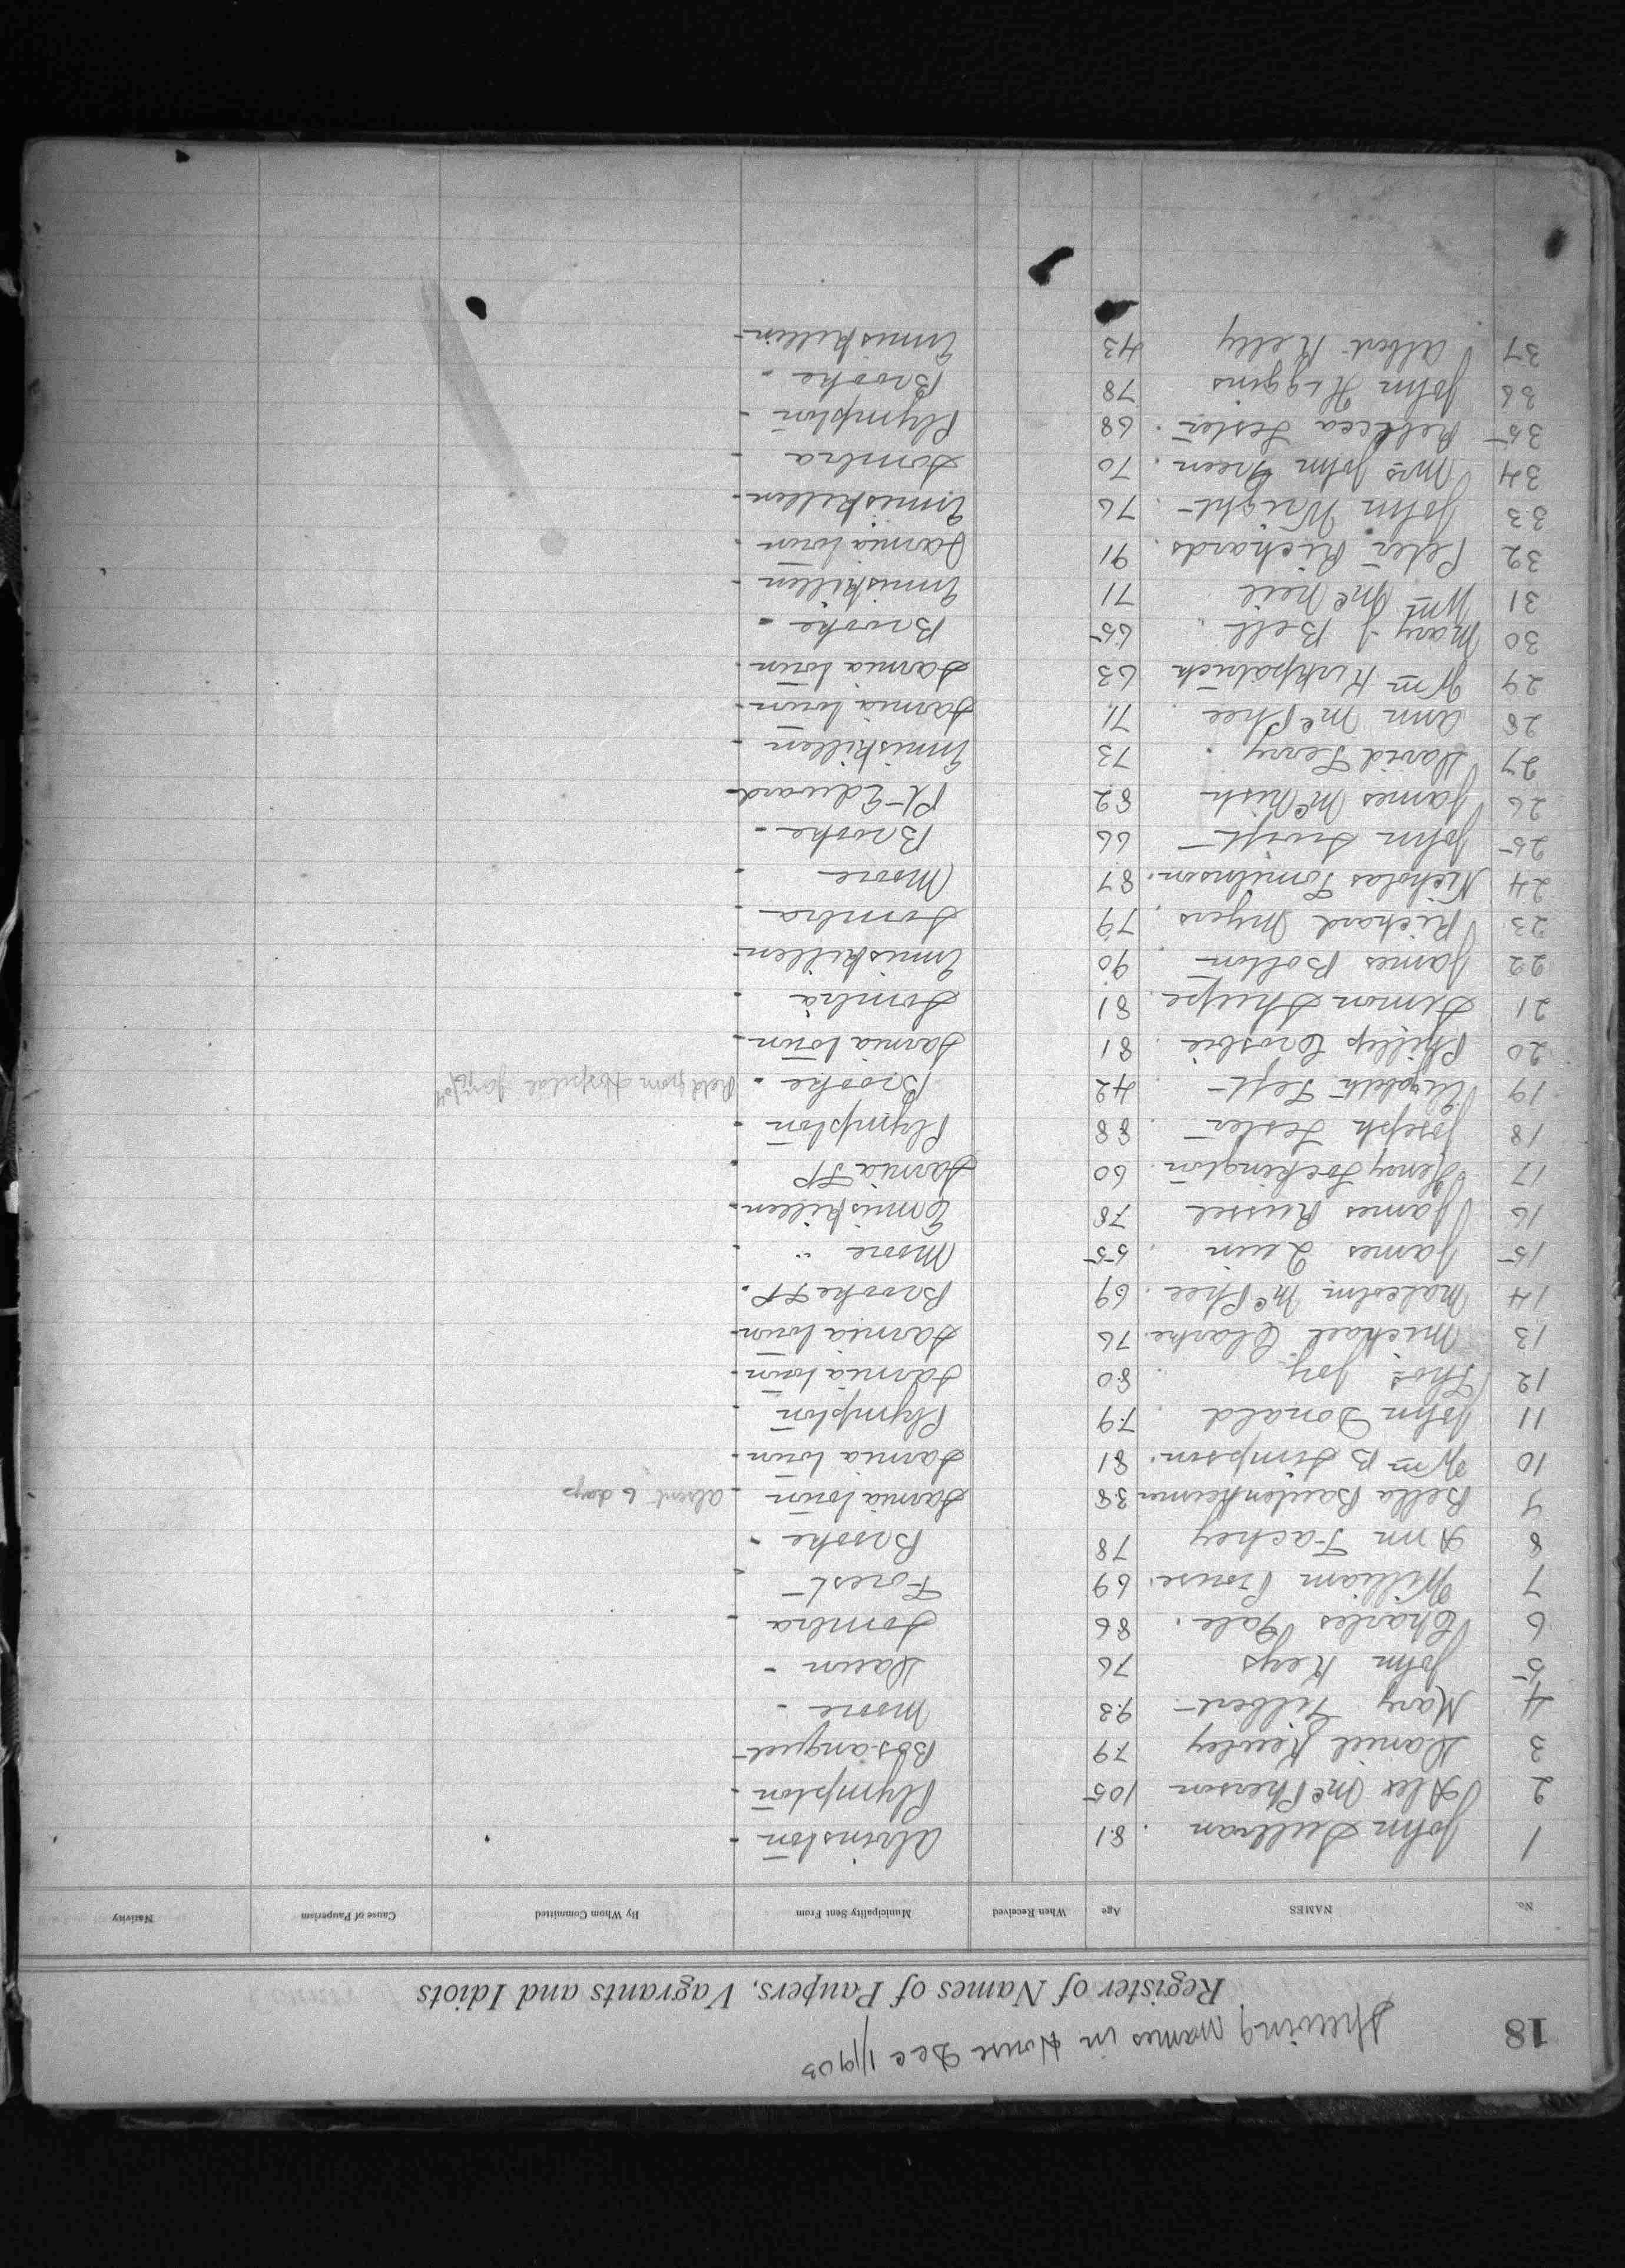 18
Shewing names in House Dec 1/1903
Register of Names of Paupers, Vagrants and Idiots
No. NAMES Age When Received Municipality Sent From By Whom Committed Cause of Pauperism Nativity
1 John Sullivan 81 Alvinston
2 Alex McPherson 105 Plympton
3 Daniel Kewley 79 Bosanquet
4 Mary Filbert 93 Moore
5 John Keys 76 Dawn
6 Charles Gale 86 Sombra
7 William Crouse 69 Forest
8 Ann Fachey 78 Brooke
9 Bella 38 Sarnia town absent 6 days
10 Wm B Simpson 81 Sarnia town
11 John Donald 79 Plympton
12 Thos Joy 80 Sarnia town
13 Michael Clarke 76 Sarnia town
14 Malcolm McPhee 69 Brooke TP
15 James Quin 55 Moore "
16 James Russel 78 Enniskillen
17 Henry Lockington 60 Sarnia TP
18 Joseph Lester 88 Plympton
19 Elizabeth Teft 42 Brooke Retd from Hospital
20 Phillip Crosbie 81 Sarnia town
21 Simon Sharpe 81 Sombra
22 James Bolton 90 Enniskillen
23 Richard Myers 79 Sombra
24 Nicholas Tomlinson 87 Moore
25 John Swift 66 Brooke
26 James McNish 82 Pt Edward
27 David Terry 73 Enniskillen
28 Ann McPhee 71 Sarnia town
29 Wm Kirkpatrick 63 Sarnia town
30 Mary J Bell 65 Brooke
31 Wm McNeil 71 Enniskillen
32 Peter Richards 91 Sarnia town
33 John Wright 76 Enniskillen
34 Mrs John Green 70 Sombra
35 Rebecca Lester 68 Plympton
36 John Higgins 78 Brooke
37 Albert Kelly 43 Enniskillen